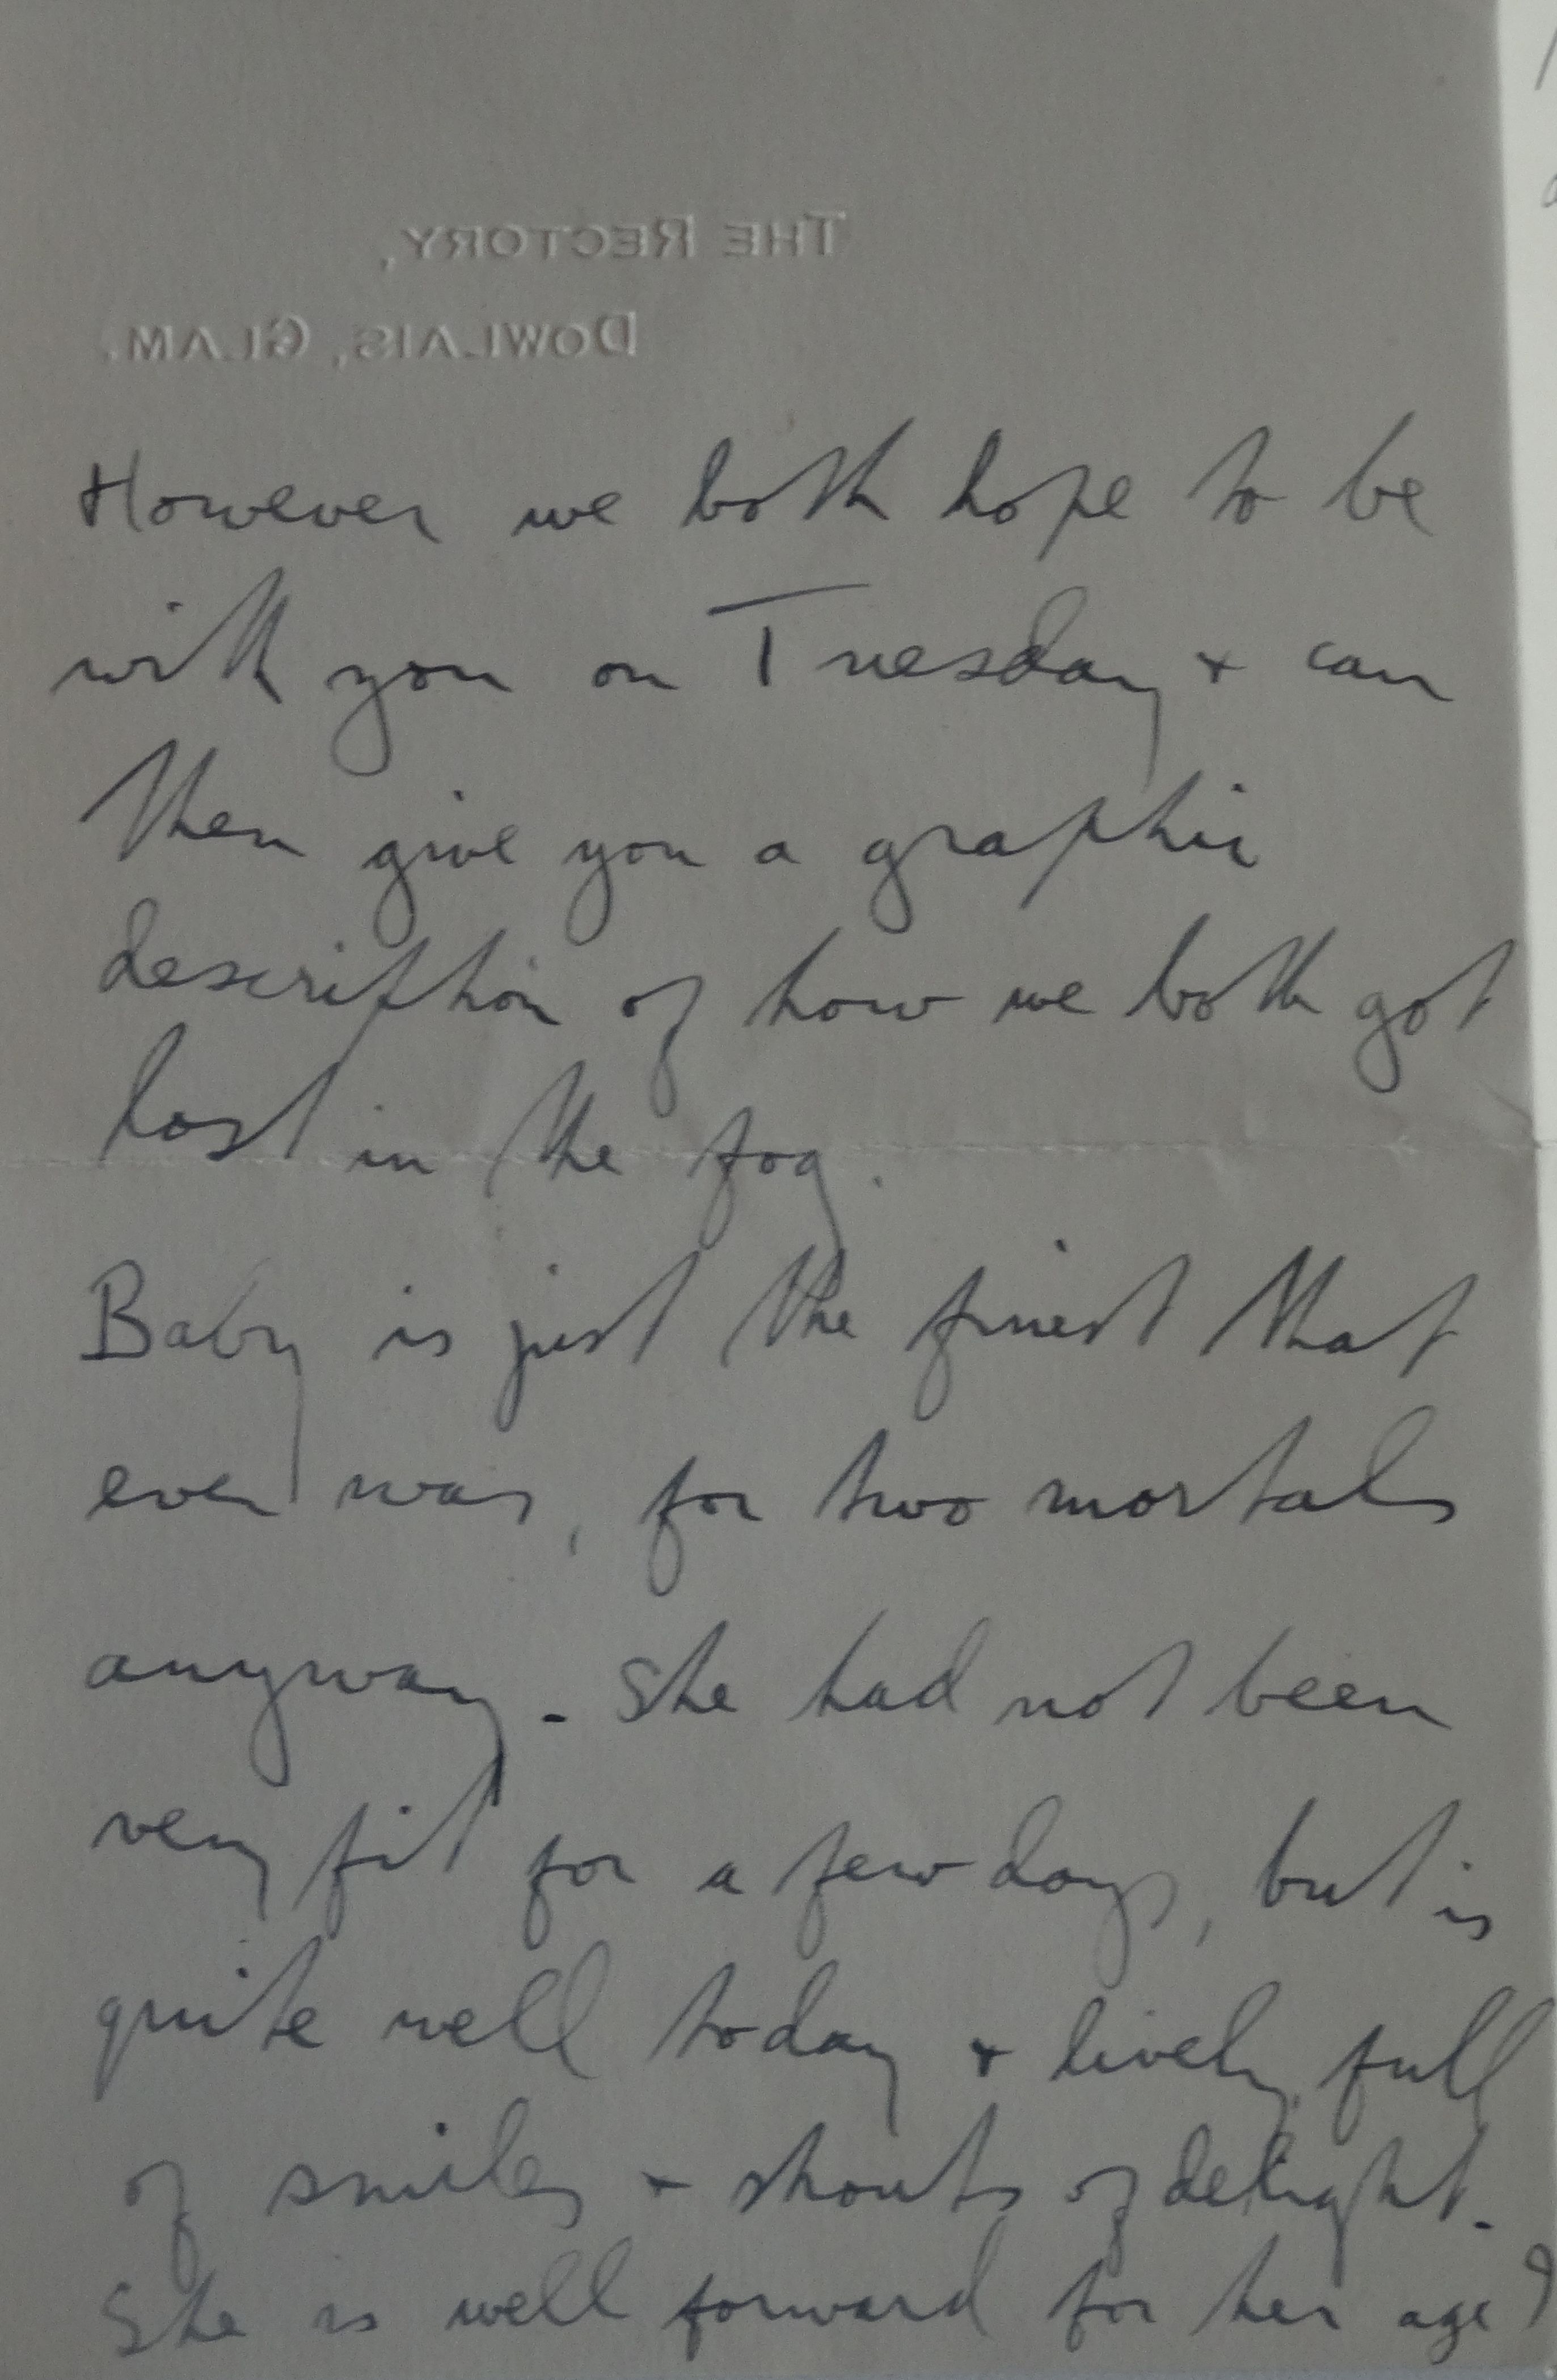 THE RECTORY,
DOWLAIS, GLAM.
However we both hope to be
with you on Tuesday + can
then give you a graphic
description of how we both got
lost in the fog.
Baby is just the finest that
ever was, for two mortals
anyway. She had not been
very fit for a few days, but is
quite well today + lively, full
of smiles + shouts of delight.
She is well forward for her age